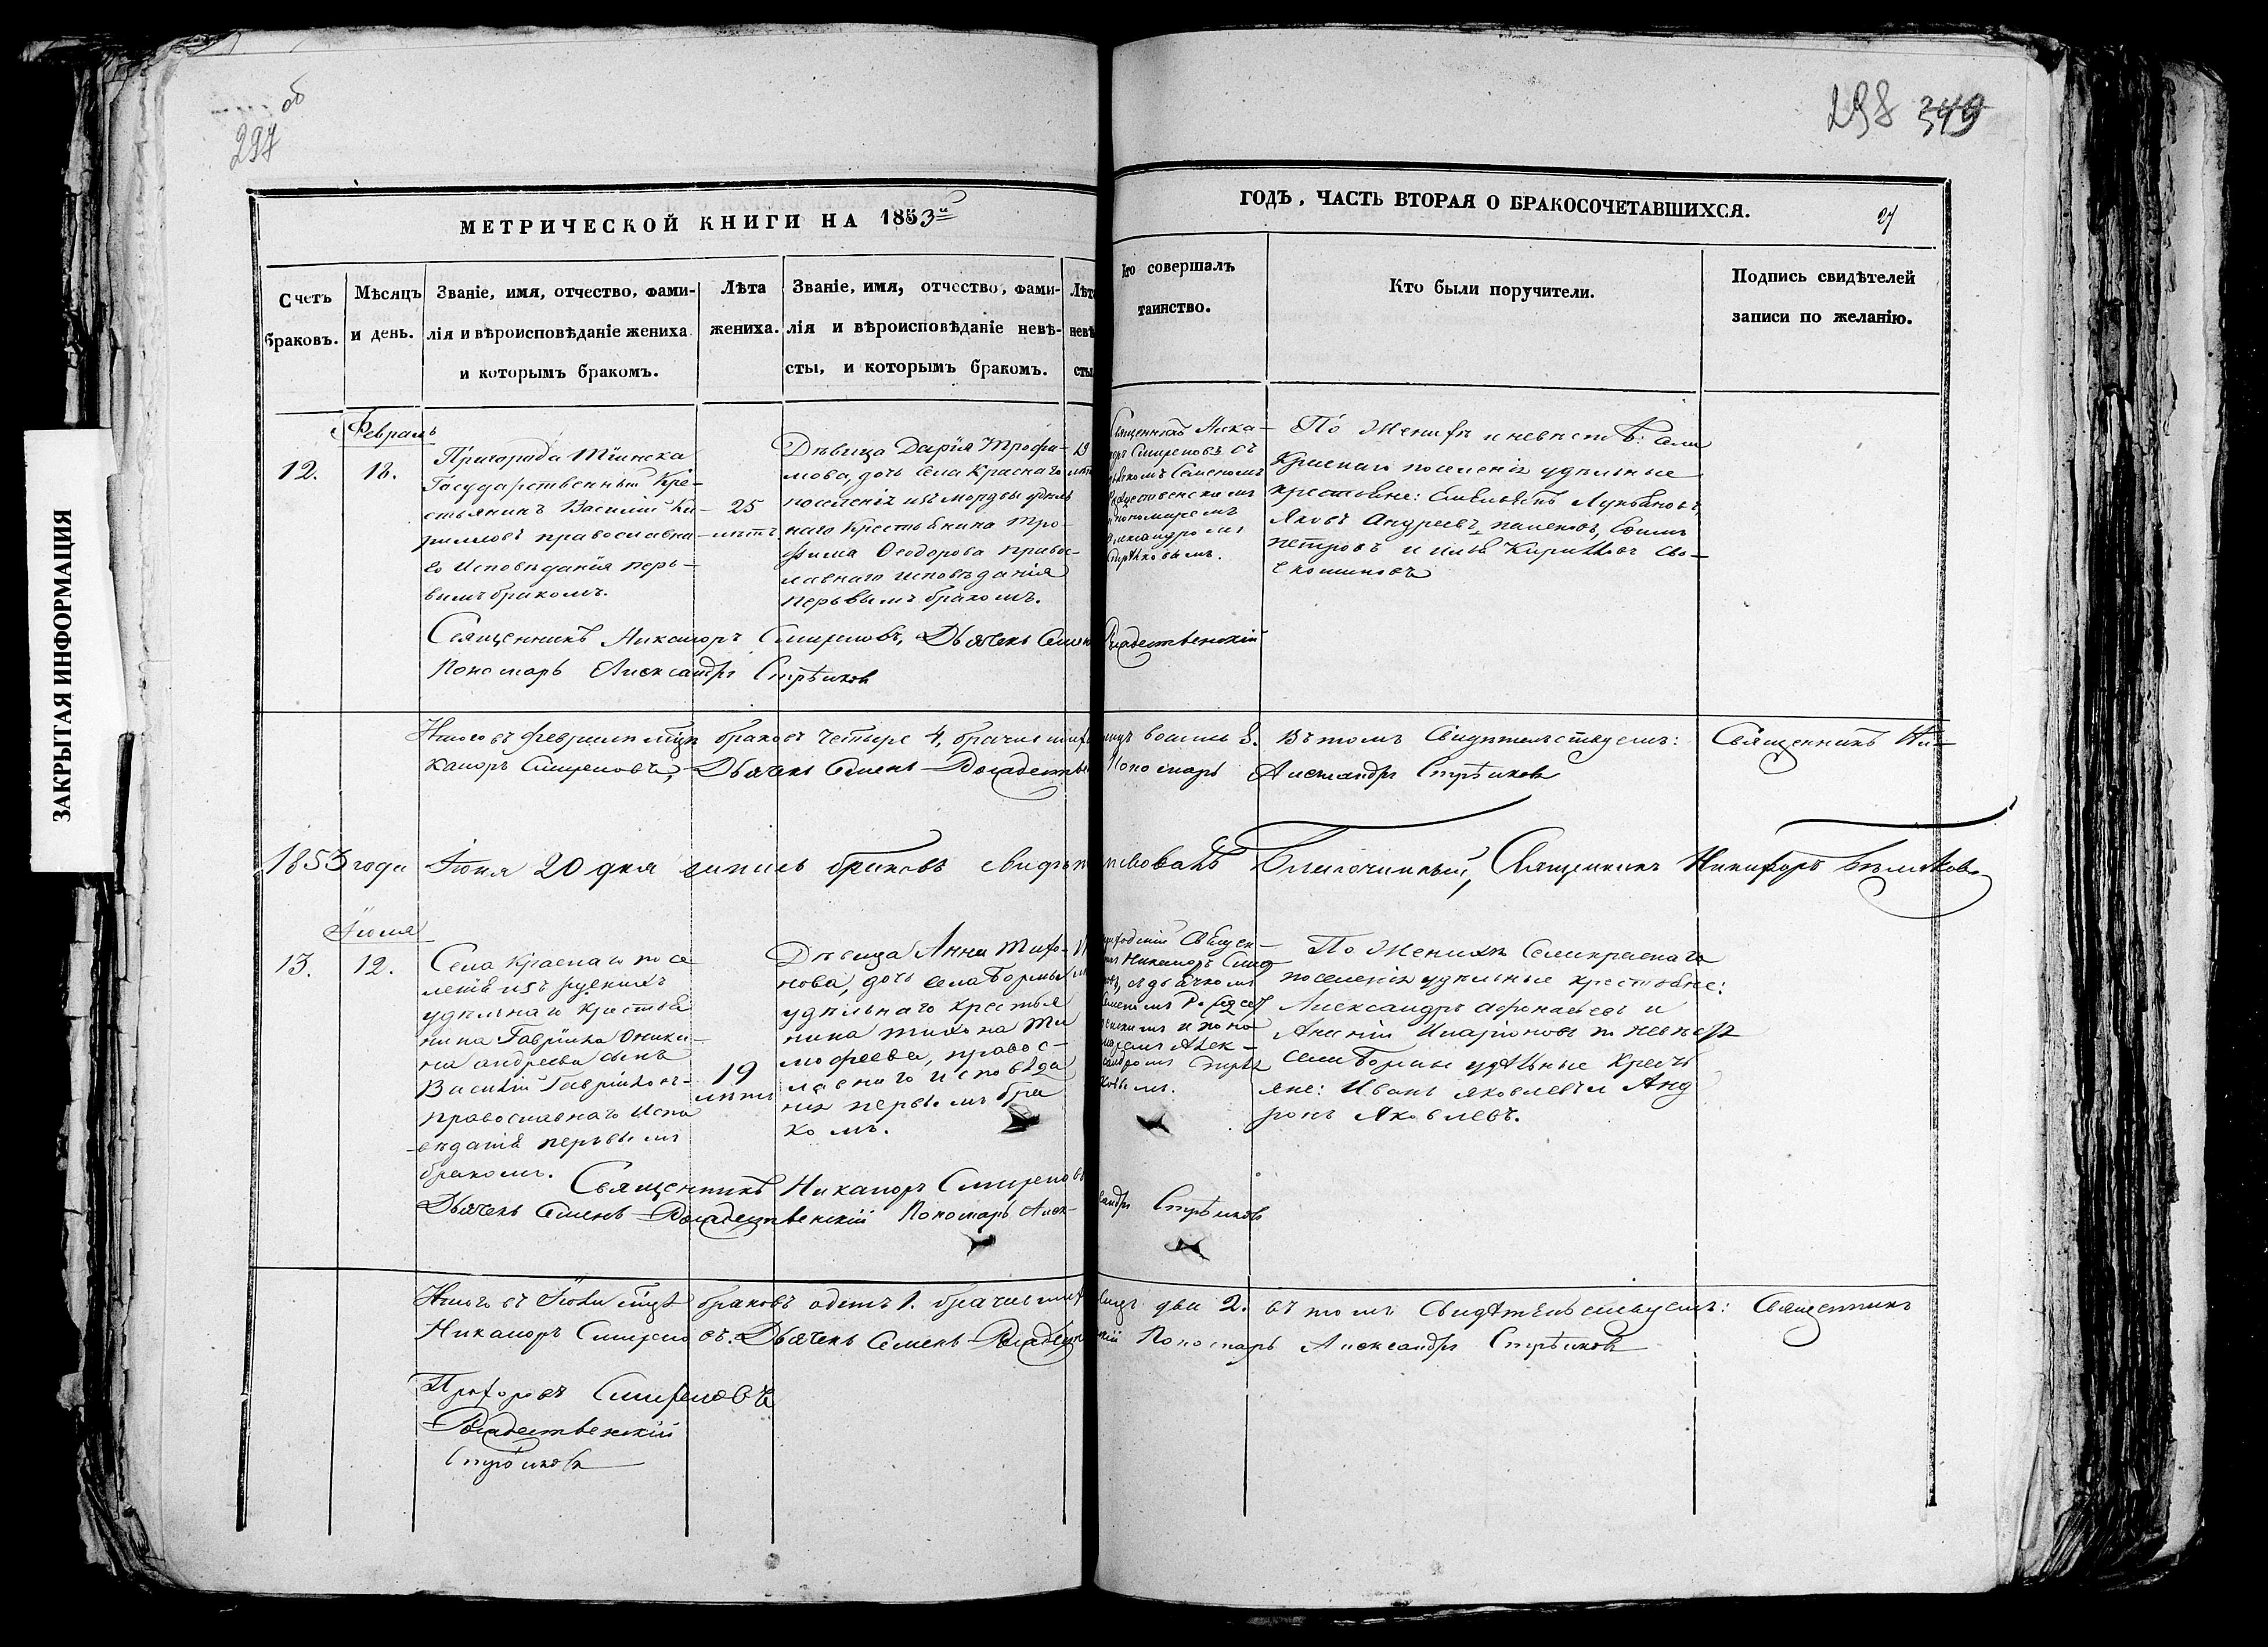 297
об
298 349
ЗАКРЫТАЯ ИНФОРМАЦИЯ
МЕТРИЧЕСКОЙ КНИГИ НА 1853й
ГОДЪ, ЧАСТЬ ВТОРАЯ О БРАКОСОЧЕТАВШИХСЯ.
27
Счетъ
браковъ.
Мѣсяцъ
и день.
Званіе, имя, отчество, фами-
лія и вѣроисповѣданіе жениха
и которымъ бракомъ.
Лѣта
жениха.
Званіе, имя, отчество, фами-
лія и вѣроисповѣданіе невѣ-
сты, и которымъ бракомъ.
Лѣта
невѣ
сты
Кто совершалъ
таинство.
Кто были поручители.
Подпись свидѣтелей
записи по желанію.
Февраль
12.
18.
Пригорода Тіинска
Государственный Кре-
стьянинъ Василій Ки-
рилловъ православна-
го Исповѣданія пер-
вымъ бракомъ.
25
лѣтъ
Дѣвица Дарія Трофи-
мова, дочь села Краснаго
поселенія изъ мордвы удѣль
наго крестьянина Тро-
фима Ѳеодорова правос-
лавнаго исповѣданія
первымъ бракомъ.
19
Священникъ Ника-
норъ Смиреновъ съ
дьячкомъ Семеномъ
Рождественскимъ
и пономаремъ
Александромъ
Стрѣлковымъ.
По Женихѣ и невѣстѣ: Села
Краснаго поселенія удѣльные
крестьяне: Емельянъ Лукьяновъ,
Яковъ Андреевъ,
Петровъ и Илья Кирилловъ
Священникъ Никаноръ Смиреновъ, Дьячекъ Семенъ Рождественскій
Пономарь Александръ Стрѣлковъ
Итого въ февралѣ мцѣ браковъ четыре 4, брачившихся лицъ восемь 8. Въ томъ Свидѣтельствуемъ: Священникъ Ни-
каноръ Смиреновъ, Дьячекъ Семенъ Рождестве Пономарь Александръ Стрѣлковъ
1853 года Іюня 20 дня запись браковъ свидѣтельствовалъ Благочинный, Священникъ Никифоръ Бѣляковъ
Іюля
13.
12.
Села Краснаго посе
ленія изъ рускихъ
удѣльнаго Крестья
нина Гавріила Оники-
на андреева сынъ
Василій Гавріиловъ
православнаго Испо
вѣданія первымъ
бракомъ.
19
лѣтъ
Дѣвица Анна Тихо-
нова, дочь села Бормы
удѣльнаго крестья
нина Тихона Ти
мофеева, правос-
лавнаго исповѣда
нія первымъ бра
комъ.
приходскій Священ-
никъ Никаноръ Смир
новъ, съ дьячкомъ
Семеномъ Рождест
венскимъ и поно
маремъ Алек-
сандромъ Стрѣл
ковымъ.
По Женихѣ Села краснаго
поселенія удѣльные крестьяне:
Александръ Афонасьевъ и
Ананій Иларіоновъ по невѣстѣ
села Бормы удѣльные Кресть
яне: Иванъ Яковлевъ и Анд
ронъ Яковлевъ.
Священникъ Никаноръ Смиреновъ
Дьячекъ Семенъ Рождественскій Пономарь Александръ Стрѣлковъ
Итого въ Іюлѣ мцѣ браковъ одинъ 1. брачившихся лицъ два 2. въ томъ Свидѣтельствуемъ: Священникъ
Никаноръ Смиреновъ. Дьячекъ Семенъ Рождественскій Пономарь Александръ Стрѣлковъ
Смиреновъ
Рождественскій
Стрѣлковъ